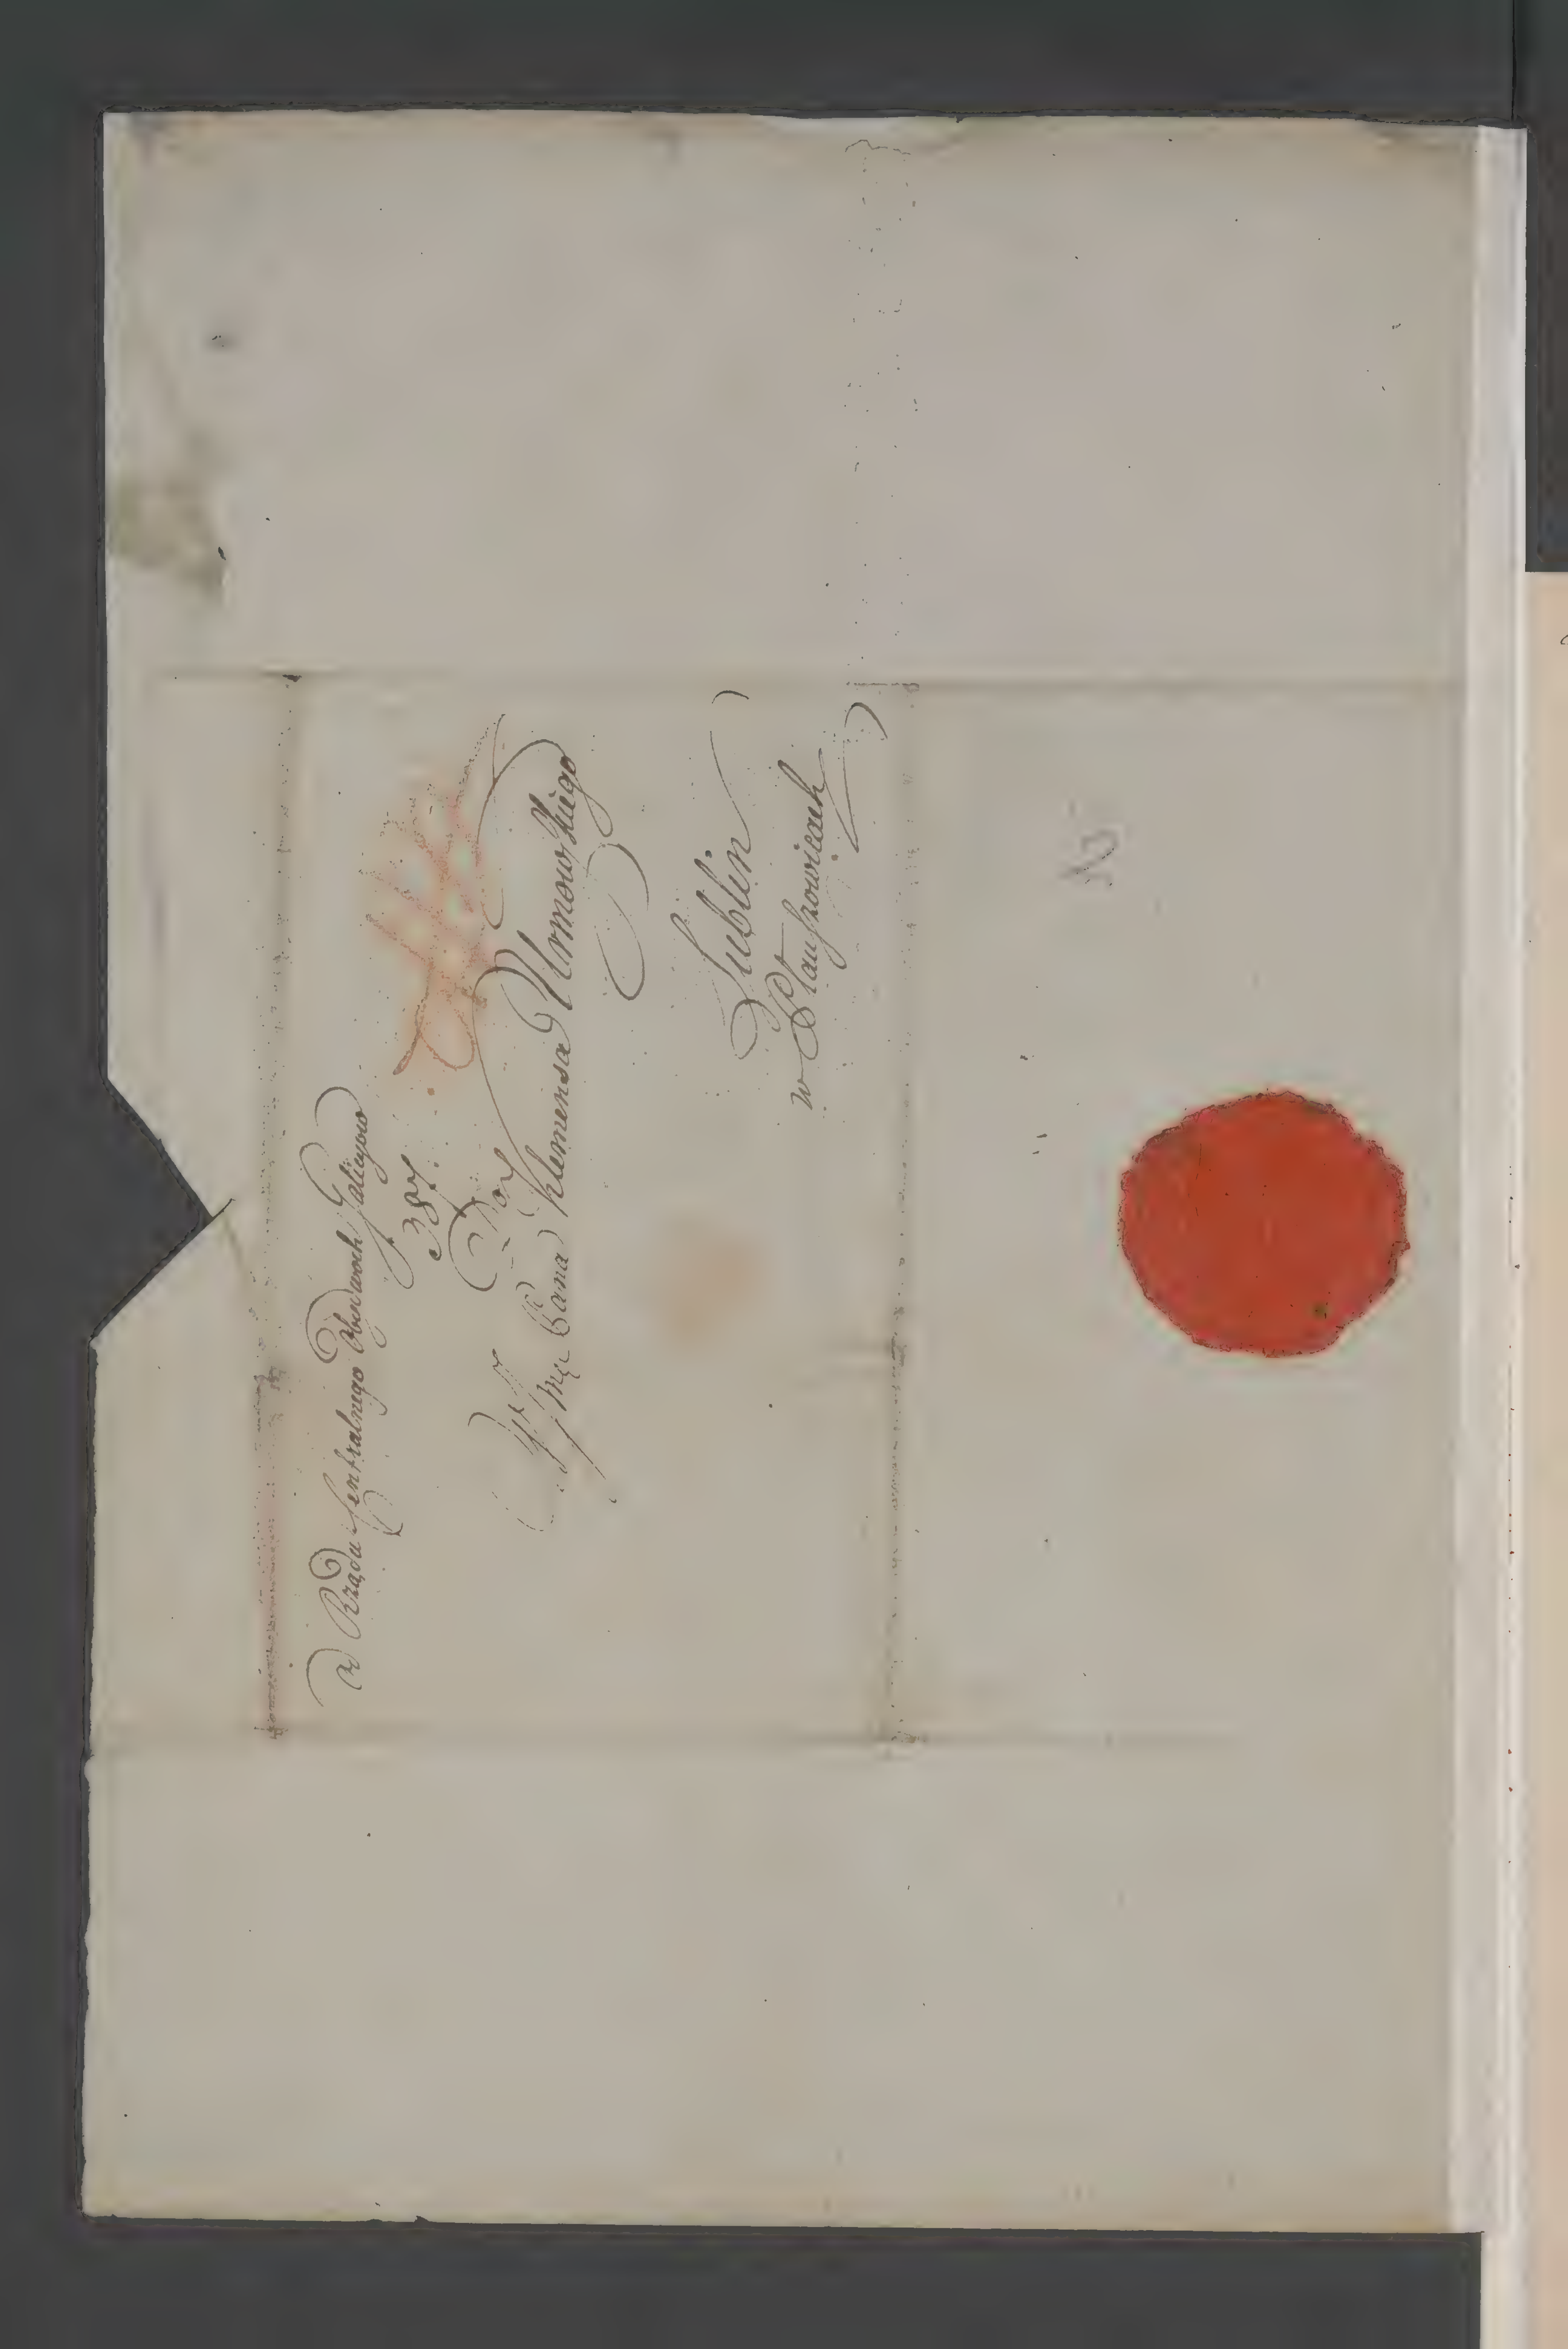 od Rządu Centralnego Obydwoch Galicyow
387.
Do
JMę Pana Klemensa Urmowskiego
Lublin
w Staszowicach